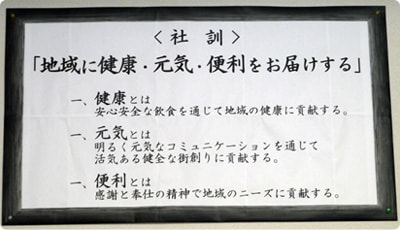 〈社訓〉
「地域に健康・元気・便利をお届けする」
一、健康とは
安心安全な飲食を通じて地域の健康に貢献する。
一、元気とは
明るく元気なコミュニケーションを通じて
活気ある健全な街創りに貢献する。
一、便利とは
感謝と奉仕の精神で地域のニーズに貢献する。